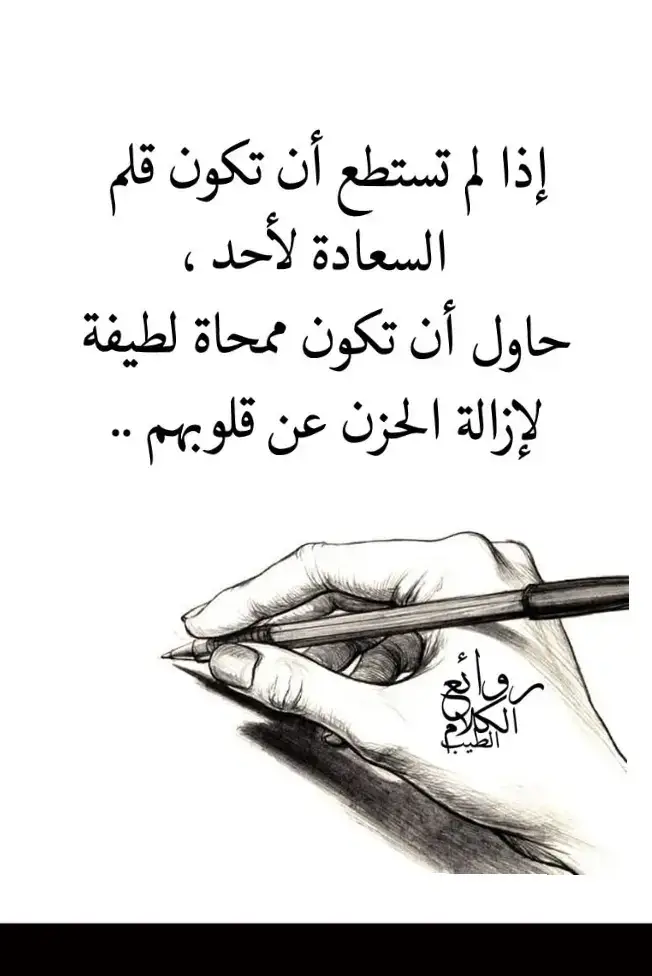 إذا لم تستطع أن تكون قلم
السعادة لأحد ،
حاول أن تكون ممحاة لطيفة
لإزالة الحزن عن قلوبهم ..
روائع
الكلام
الطيب